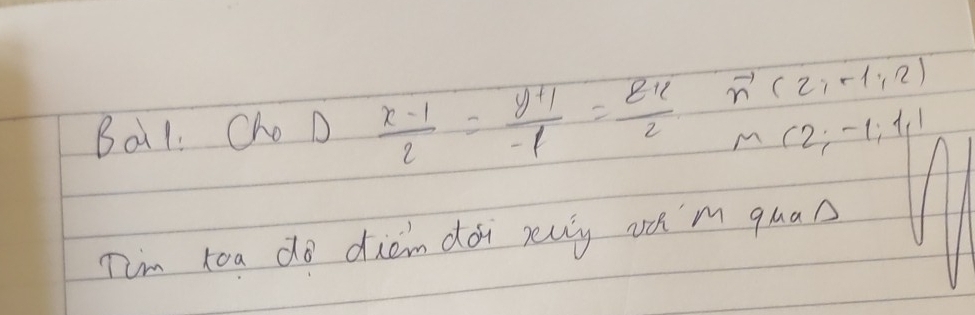 Bài 1: Cho D x-1/2 = y+1/-1 = z+2/2 n⃗ (2; -1; 2)
M (2; -1; 1)
Tìm toạ độ điểm đối xứng với M qua D